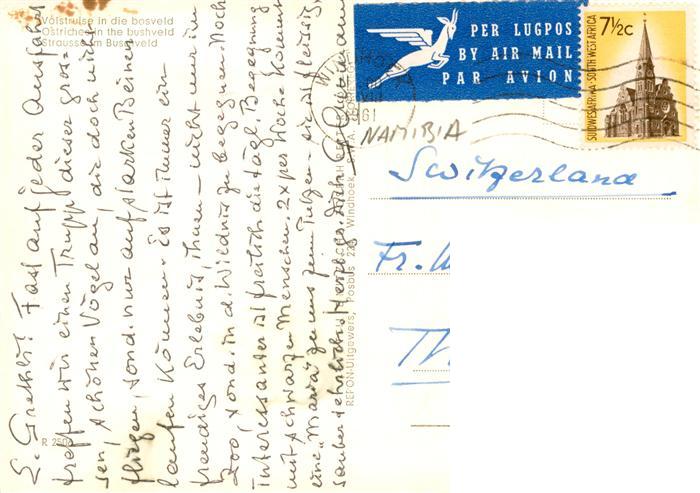 Volstruise in die bosveld
Ostriches in the bushveld
Strausse im Buschveld
L. Grethli! Fast auf jeder Ausfahrt
treffen wir einen Trupp dieser gros-
sen, schönen Vögel an, die doch nicht
fliegen, sond. nur auf starken Beinen
laufen können. Es ist immer ein
freudiges Erlebnis, ihnen – nicht nur im
Zoo, sond. in d. Wildnis zu begegnen. Noch
interessanter ist freilich die tägl. Begegnung
mit schwarzen Menschen. 2x per Woche kommt
eine Maria zu uns zum Putzen – sie ist fleissig,
sauber & ehrlich. Herzl.
R 2506
REFON-Uitgewers, Posbus Windhoek
PER LUGPOS
BY AIR MAIL
PAR AVION
7½c
SUIDWES-AFRIKA · SOUTH WEST AFRICA
WINDHOEK
1961
NAMIBIA
Switzerland
Fr.